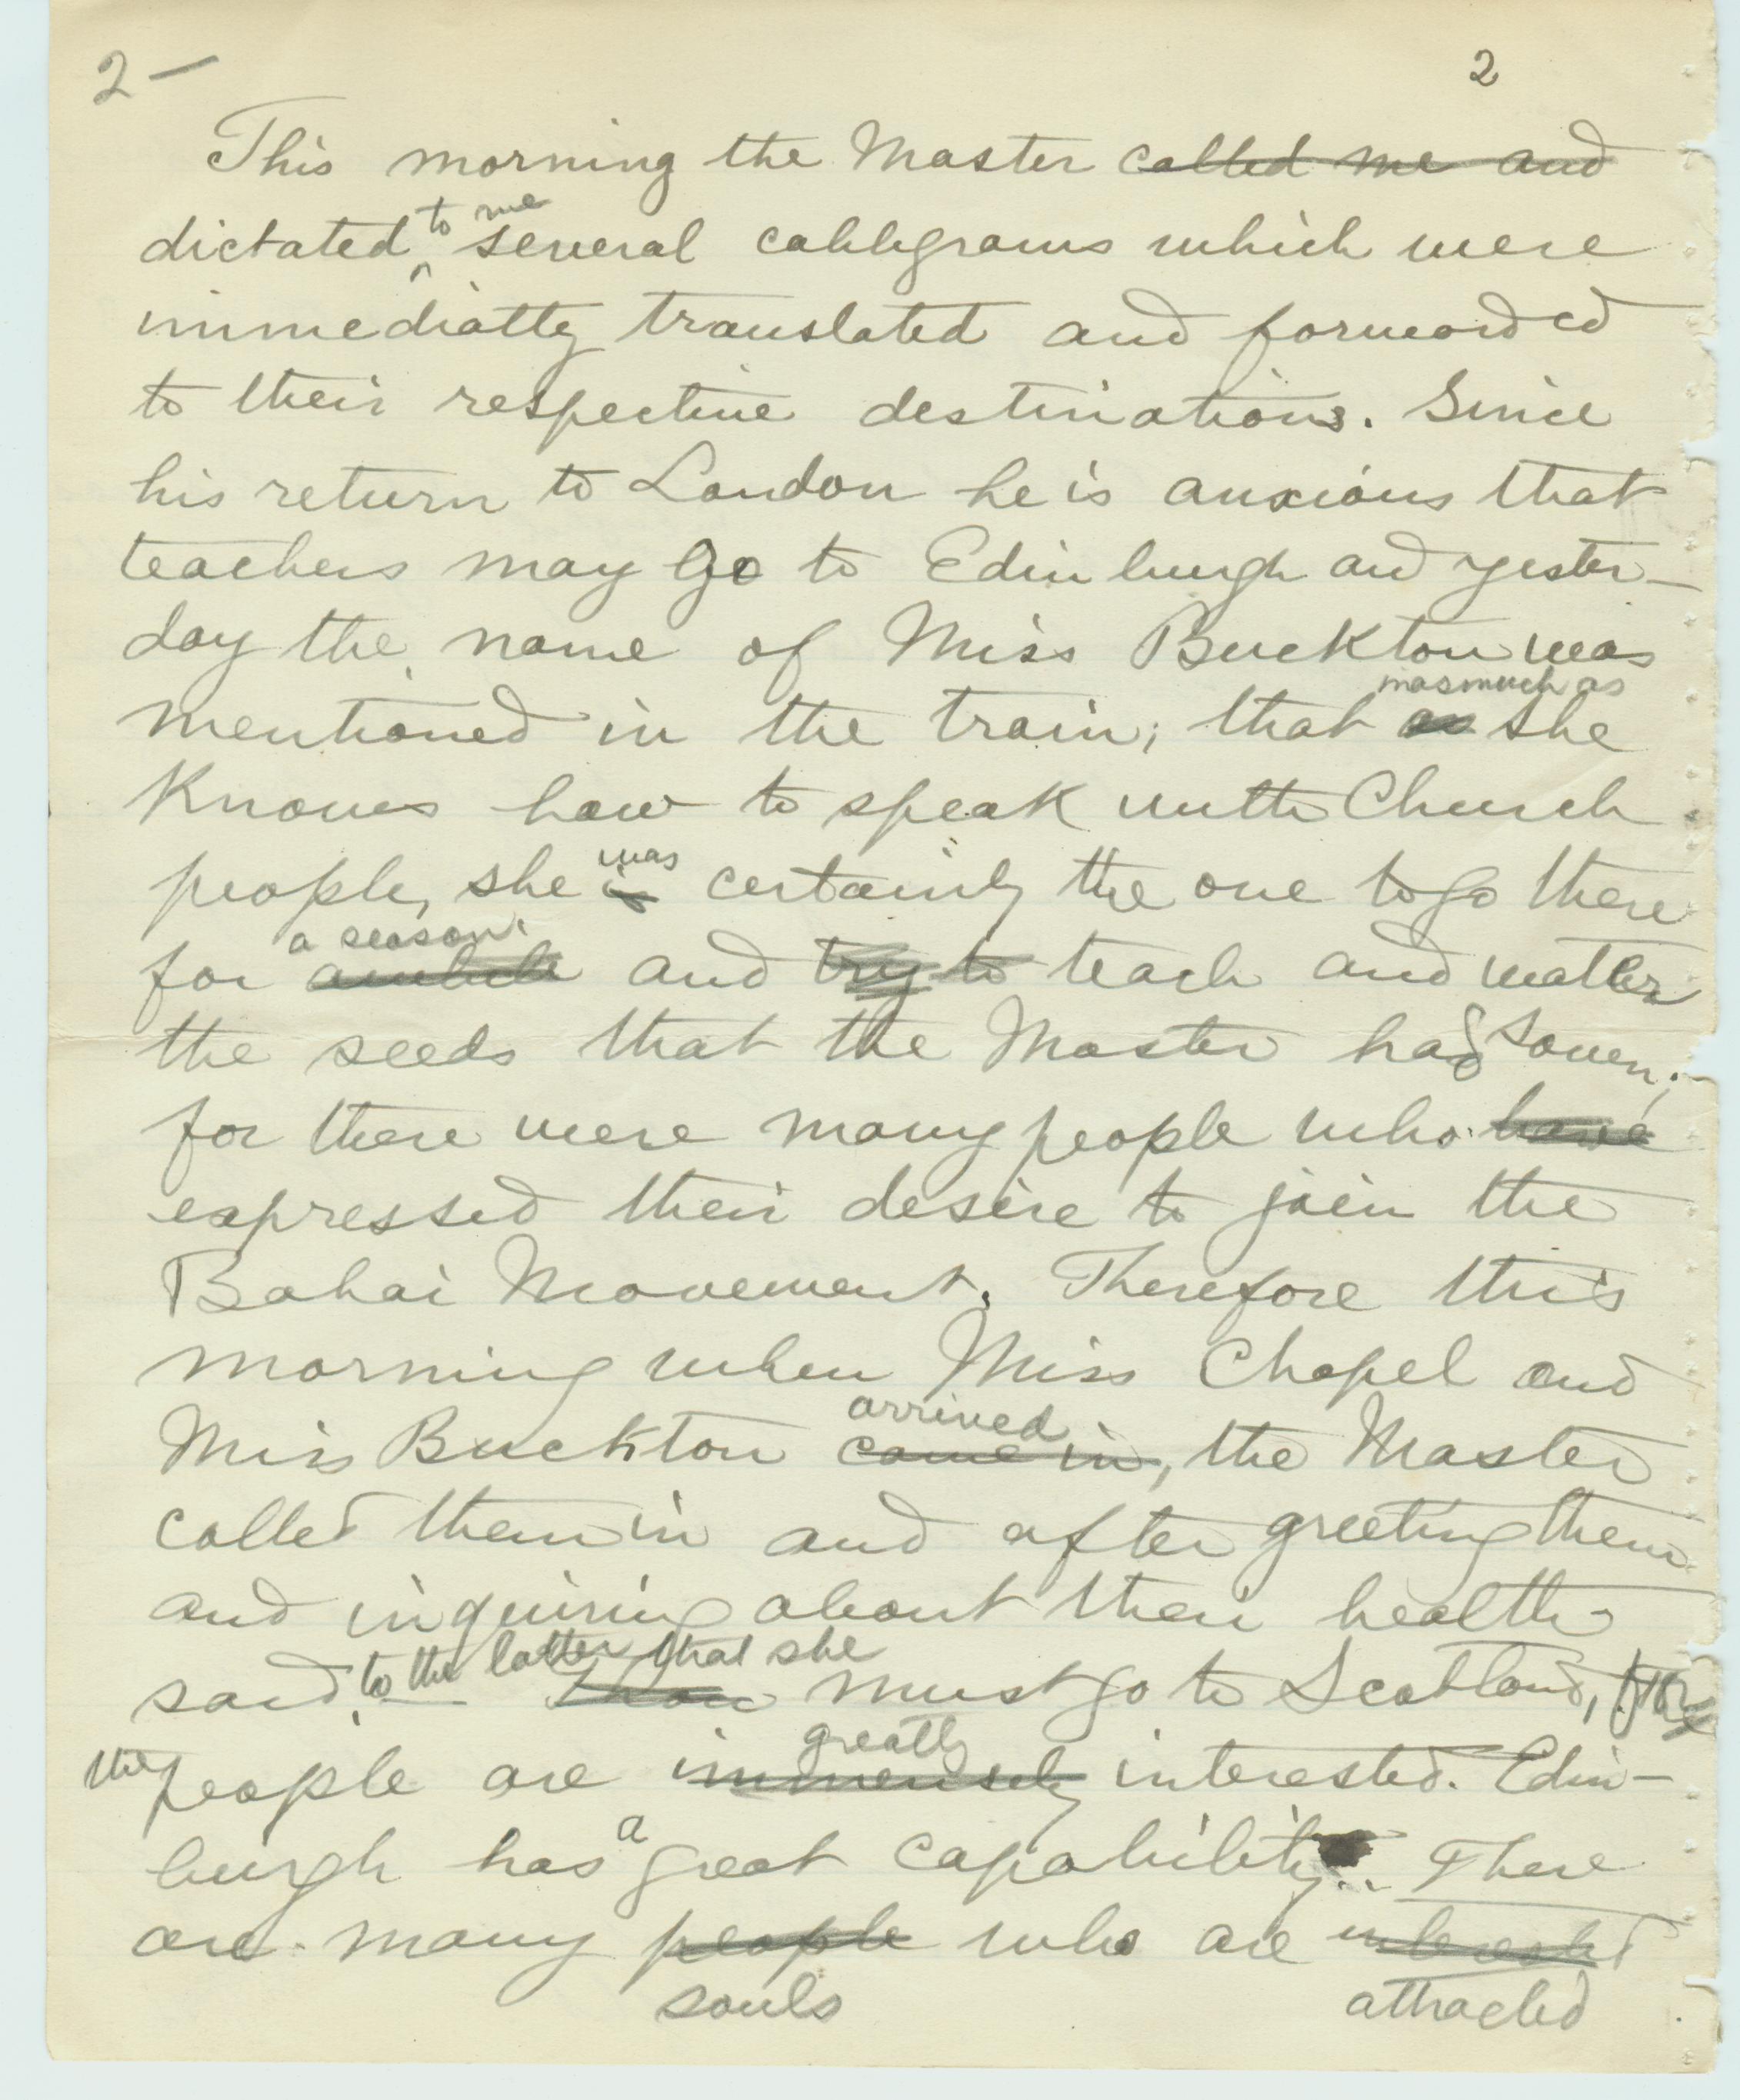 2 — 2
This morning the Master called me and
dictated to me several cablegrams which were
immediatly translated and forwarded
to their respective destinations. Since
his return to London he is anxious that
teachers may go to Edinburgh and yester-
day the name of Miss Buckton was
mentioned in the train; that as inasmuch as she
knows how to speak with Church
people, she is was certainly the one to go there
for awhile a season and try to teach and watter
the seeds that the Master had sowen;
for there were many people who have
expressed their desire to join the
Bahai Movement. Therefore this
morning when Miss Chapel and
Miss Buckton came in, arrived the Master
called them in and after greeting them
and inquiring about their health
said, to the latter that she must go to Scotland, for
the people are immensely greatly interested. Edin-
burgh has a great capability. There
are many people souls who are interested attracted